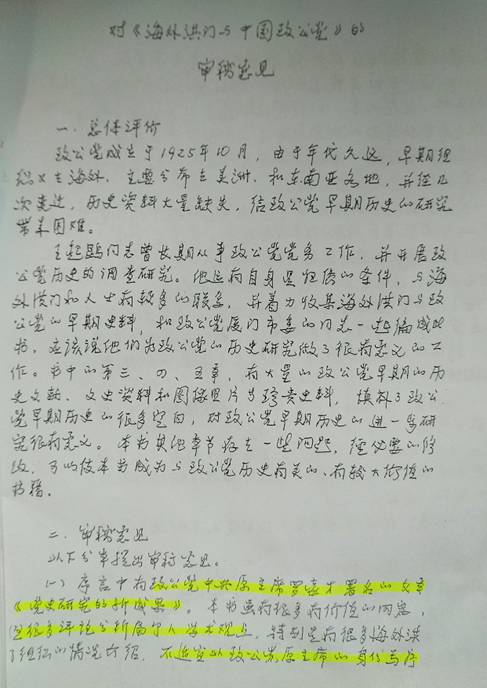 对《海外洪门与中国致公党》的
审稿意见
一、总体评价
致公党成立于1925年10月，由于年代久远，早期组
织又在海外，主要分布在美洲、和东南亚各地，并经几
次变迁，历史资料大量缺失，给致公党早期历史的研究
带来困难。
王起鹍同志曾长期从事致公党党务工作，并开展致
公党历史的调查研究。他运用自身是归侨的条件，与海
外洪门和人士有较多的联系，并着力收集海外洪门与致
公党的早期史料，和致公党厦门市委的同志一起编成此
书。应该说他们为致公党的历史研究做了很有意义的工
作。书中的第三、四、五章，有大量的致公党早期的历
史文献、文史资料和图像照片等珍贵史料，填补了致公
党早期历史的很多空白，对致公党早期历史的进一步研
究很有意义。本书其他章节存在一些问题，经必要的修
改，可以使本书成为与致公党历史有关的、有较大价值的
书籍。
二、审稿意见
以下分章提出审稿意见。
(一) 序言中有致公党中央原主席罗豪才署名的文章
《党史研究的新成果》。本书虽有很多有价值的内容，
但很多评论分析属个人学术观点，特别是有很多海外洪
门组织的情况介绍，不适宜以致公党原主席的身份写序